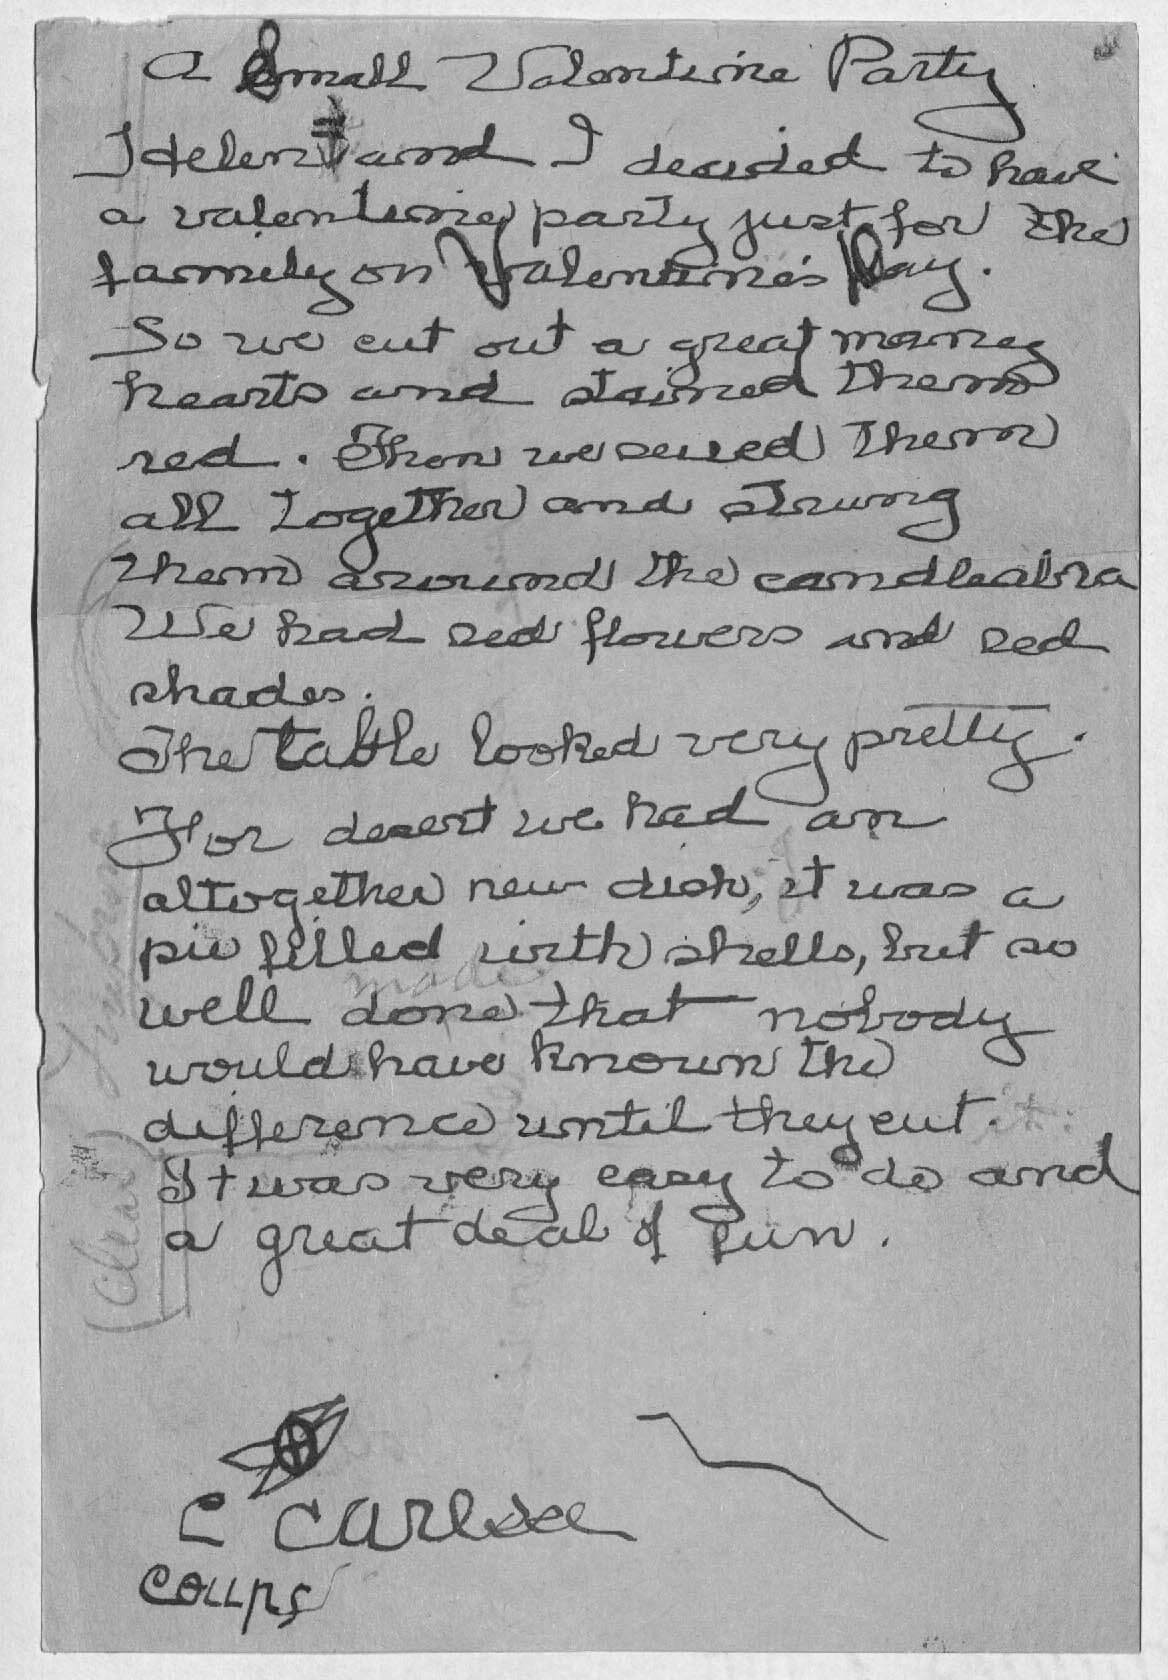 A Small Valentine Party
Helen and I decided to have
a valentine party just for the
family on Valentine's Day.
So we cut out a great many
hearts and stained them
red. Then we sewed them
all together and strung
them around the candleabra
We had red flowers and red
shades.
The table looked very pretty.
For desert we had an
altogether new dish, it was a
pie filled with shells, but so
made
well done that nobody
would have known the
difference until they cut.
It was very easy to do and
a great deal of fun.
(Clear)
C Carl
coups